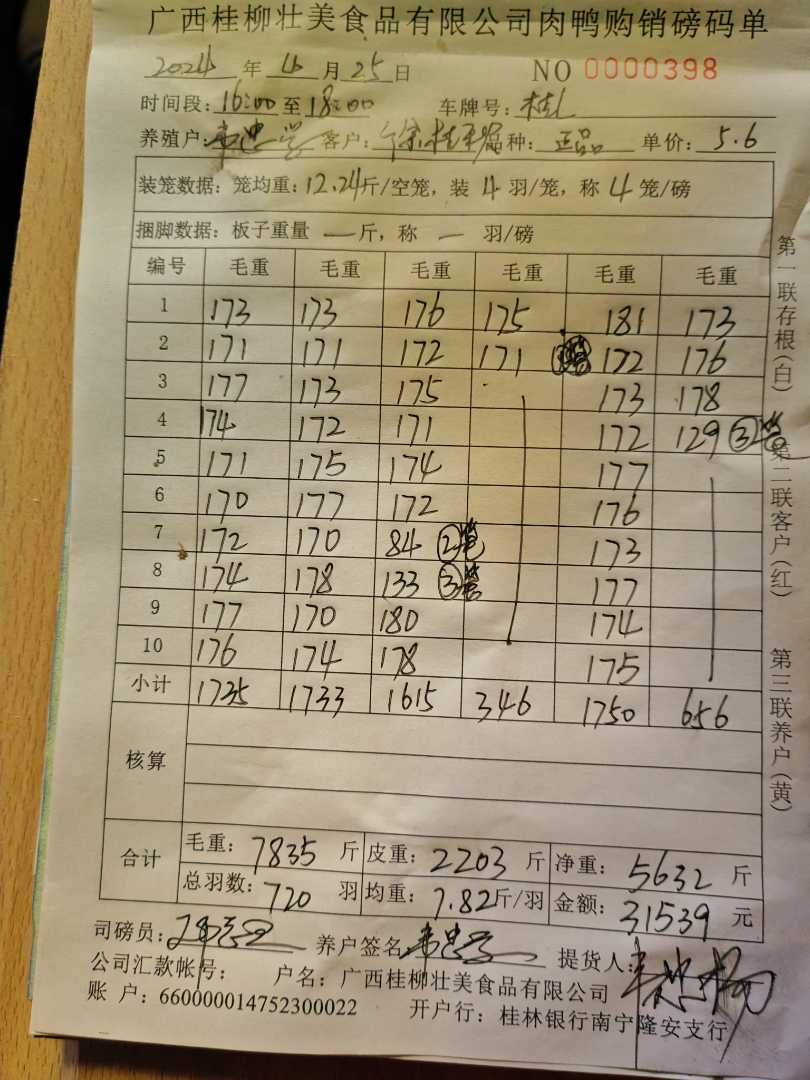 广西桂柳壮美食品有限公司肉鸭购销磅码单
2024 年 4 月 25 日 NO 0000398
时间段: 16:00 至 18:00 车牌号: 桂L
养殖户: 客户: 品种: 正品 单价: 5.6
装笼数据: 笼均重: 12.24斤/空笼, 装 4 羽/笼, 称 4 笼/磅
捆脚数据: 板子重量 — 斤, 称 — 羽/磅
编号 毛重 毛重 毛重 毛重 毛重 毛重
1 173 173 176 175 181 173
2 171 171 172 171 172 176
3 177 173 175 173 178
4 174 172 171 172 129 ③笼
5 171 175 174 177
6 170 177 172 176
7 172 170 84 ②笼 173
8 174 178 133 ③笼 177
9 177 170 180 174
10 176 174 178 175
小计 1735 1733 1615 346 1750 656
核算
合计 毛重: 7835 斤 皮重: 2203 斤 净重: 5632 斤
总羽数: 720 羽 均重: 7.82斤/羽 金额: 31539 元
司磅员: 养户签名 提货人:
公司汇款帐号: 户名: 广西桂柳壮美食品有限公司
账 户: 660000014752300022 开户行: 桂林银行南宁隆安支行
第一联存根(白) 第二联客户(红) 第三联养户(黄)